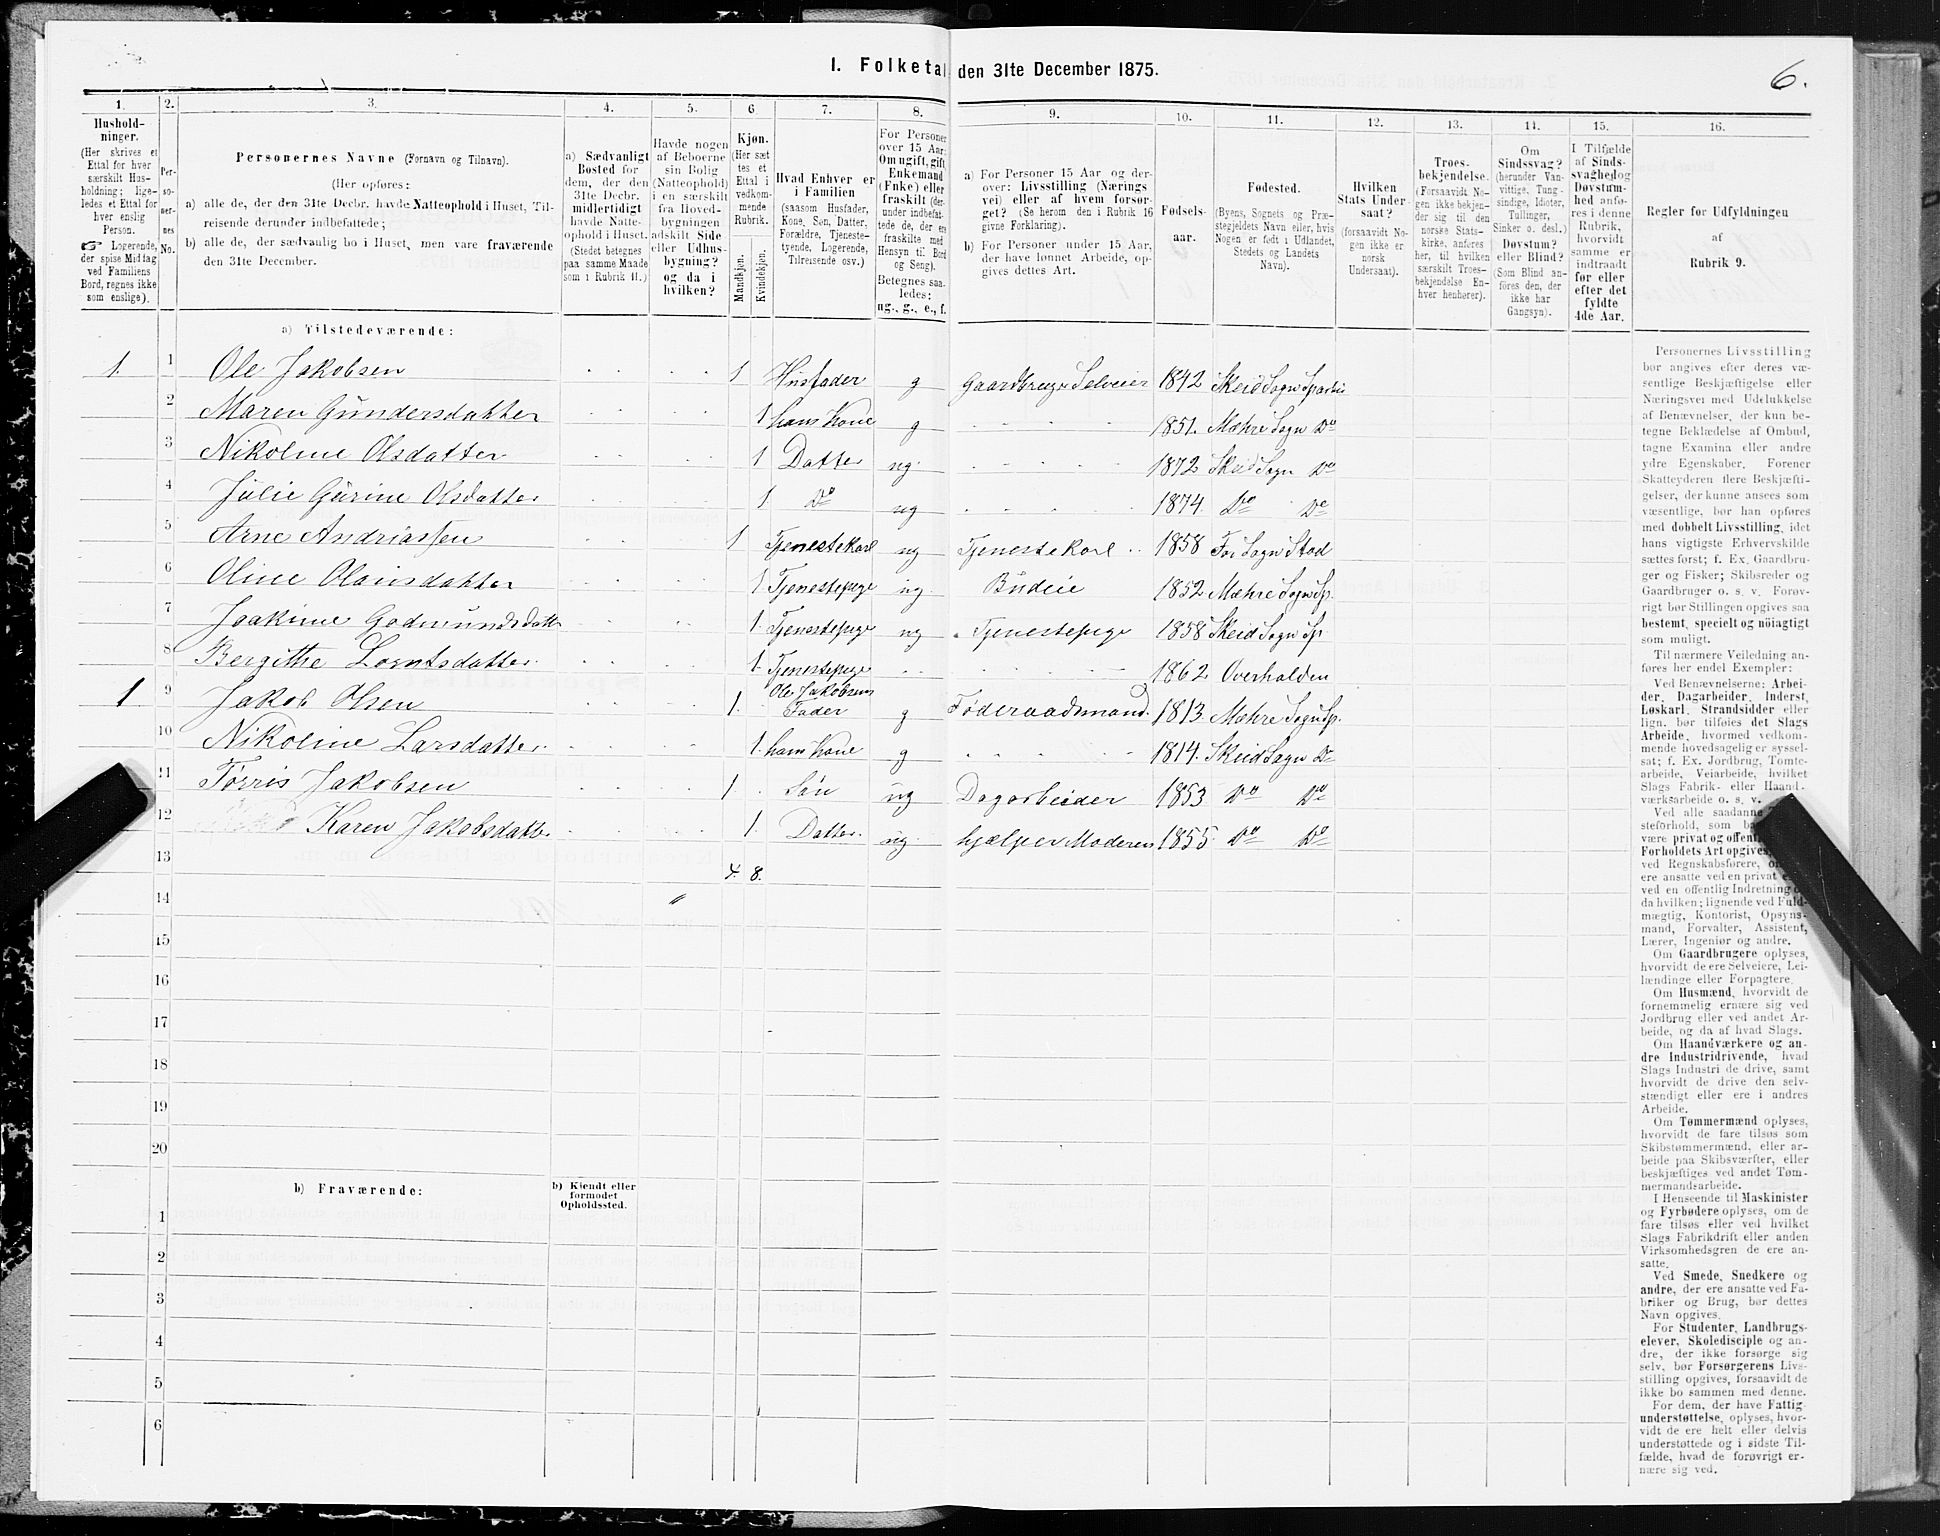 I. Folketal den 31te December 1875.
6.
1.
2.
3.
4.
5.
6
7.
8.
9.
10.
11.
12.
13.
14.
15.
16.
Hushold-
ninger.
(Her skrives et
Ettal for hver
særskilt Hus-
holdning; lige-
ledes et Ettal for
hver enslig
Person.
☞ Logerende,
der spise Middag
ved Familiens
Bord, regnes ikke
som enslige).
Per-
so-
ner-
nes
No.
Personernes Navne (Fornavn og Tilnavn).
(Her opføres:
a) alle de, der den 31te Decbr. havde Natteophold i Huset, Til-
reisende derunder indbefattede;
b) alle de, der sædvanlig bo i Huset, men vare fraværende
den 31te December.
a) Sædvanligt
Bosted for
dem, der den
31te Decbr.
midlertidigt
havde Natte-
ophold i Huset.
(Stedet betegnes
paa samme Maade
som i Rubrik 11.)
Havde nogen
af Beboerne
sin Bolig
(Natteophold)
i en særskilt
fra Hoved-
bygningen
adskilt Side-
eller Udhus-
bygning?
og da i
hvilken?
Kjøn.
(Her sæt
tes et
Ettal i
vedkom-
mende
Rubrik.
Mandkjøn.
Kvindekjøn.
Hvad Enhver er
i Familien
(saasom Husfader,
Kone, Søn, Datter,
Forældre, Tjeneste-
tyende, Logerende,
Tilreisende osv.)
For Personer
over 15 Aar:
Om ugift, gift
Enkemand
(Enke) eller
fraskilt (der-
under indbefat-
tede de, der ere
fraskilte med
Hensyn til Bord
og Seng).
Betegnes saa-
ledes:
ug., g., e., f.
a) For Personer 15 Aar og der-
over: Livsstilling (Nærings
vei) eller af hvem forsør-
get? (Se herom den i Rubrik 16
givne Forklaring).
b) For Personer under 15 Aar,
der have lønnet Arbeide, op-
gives dettes Art.
Fødsels-
aar.
Fødested.
(Byens, Sognets og Præ-
stegjeldets Navn eller, hvis
Nogen er født i Udlandet,
Stedets og Landets
Navn).
Hvilken
Stats Under-
saat?
(forsaavidt No-
gen ikke er
norsk
Undersaat).
Troes-
bekjendelse.
(Forsaavidt No-
gen ikke bekjen-
der sig til den
norske Stats-
kirke, anføres
her, til hvilken
særskilt Troes-
bekjendelse En-
hver henhører).
Om
Sindssvag?
(herunder Van-
vittige, Tung-
sindige, Idioter,
Tullinger,
Sinker o. desl.)
Døvstum?
eller Blind?
(Som Blind an-
føres den, der
ikke har
Gangsyn).
I Tilfælde
af Sinds-
svaghed og
Døvstum-
hed anfø-
res i denne
Rubrik,
hvorvidt
samme er
indtraadt
før eller
efter det
fyldte
4de Aar.
Regler før Udfyldningen
af
Rubrik 9.
a) Tilstedeværende:
1. 1 Ole Jakobsen 1 Husfader g Gaardbruger Selveier 1842 Skeid Sogn
2 Maren Gundersdatter 1 hans Kone g 1851. Mæhre Sogn Do
3 Nikoline Olsdatter 1 Datter ug 1872 Skeid Sogn Do
4 Julie Gurine Olsdatter 1. Do ug 1874. Do Do
5 Arne Andriassen 1 Tjenestekarl ug Tjenestekarl 1858 For Sogn Stod
6 Oline Olausdatter 1 Tjenestepige ug. Budeie 1852 Mæhre Sogn Sp.
7 Joakime Godmundsdatt 1. Tjenestepige ug Tjenestepige 1858 Skeid Sogn Sp.
8 Bergithe Lorntsdatter. 1. Tjenestepige 1862 Overhalden
1 9 Jakob Olsen 1. Ole Jakobsens
Fader g Føderaadsmand. 1813. Mæhre Sogn Sp.
10 Nikoline Larsdatter. 1. hans Kone g 1814. Skeid Sogn Do
11 Tørris Jakobsen 1 Søn ug Dagarbeider 1853 Do Do
12 Karen Jakobsdatter 1. Datter. ug. hjælper Moderen 1855. Do Do
13
4. 8.
14
15
16
17
18
19
20
b) Fraværende:
b) Kjendt eller
formodet
Opholdssted.
1
2
3
4
5
6
Personernes Livsstilling
bør angives efter deres væ-
sentlige Beskjæftigelse eller
Næringsvei med Udelukkelse
af Benævnelser, der kun be-
tegne Beklædelse af Ombud,
tagne Examina eller andre
ydre Egenskaber. Forener
Skatteyderen flere Beskjæfti-
gelser, der kunne ansees som
væsentlige, bør han opføres
med dobbelt Livsstilling, idet
hans vigtigste Erhvervskilde
sættes først; f. Ex. Gaardbru-
ger og Fisker; Skibsreder og
Gaardbruger o. s. v. Forøv-
rigt bør Stillingen opgives saa
bestemt, specielt og nøiagtigt
som muligt.
Til nærmere Veiledning an-
føres her endel Exempler:
Ved Benævnelserne: Arbei-
der, Dagarbeider, Inderst,
Løskarl, Strandsidder eller
lign. bør tilføies det Slags
Arbeide, hvormed vedkom-
mende hovedsagelig er syssel-
sat; f. Ex. Jordbrug, Tomte-
arbeide, Veiarbeide, hvilket
Slags Fabrik- eller Haand-
værksarbeide o. s. v.
Ved alle saadanne
steforhold, som
være privat og offent
Forholdets Art opgives,
ved Regnskabsførere,
ere ansatte ved en privat
ved en offentlig Indretning
da hvilken; lignende ved Fuld-
mægtig, Kontorist, Opsyns-
mand, Forvalter, Assistent,
Lærer, Ingeniør og andre.
Om Gaardbrugere oplyses,
hvorvidt de ere Selveiere, Lei-
lændinge eller Forpagtere.
Om Husmænd, hvorvidt de
fornemmelig ernære sig ved
Jordbrug eller ved andet Ar-
beide, og da af hvad Slags.
Om Haandværkere og an-
dre Industridrivende, hvad
Slags Industri de drive, samt
hvorvidt de drive den selv-
stændigt eller ere i andres
Arbeide.
Om Tømmermænd oplyses,
hvorvidt de fare tilsøs som
Skibstømmermænd, eller ar-
beide paa Skibsværfter, eller
beskjæftiges ved andet Tøm-
mermandsarbeide.
I Henseende til Maskinister
og Fyrbødere oplyses, om de
fare tilsøs eller ved hvilket
Slags Fabrikdrift eller anden
Virksomhedsgren de ere an-
satte.
Ved Smede, Snedkere og
andre, der ere ansatte ved Fa-
briker og Brug, bør dettes
Navn opgives.
For Studenter, Landbrugs-
elever, Skoledisciple og an-
dre, der ikke forsørge sig
selv, bør Forsørgerens Livs-
stilling opgives, forsaavidt de
ikke bo sammen med denne.
For dem, der have Fattig-
understøttelse, oplyses, hvor-
vidt de ere helt eller delvis
understøttede og i sidste Til-
fælde, hvad de forøvrigt er-
nære sig ved.